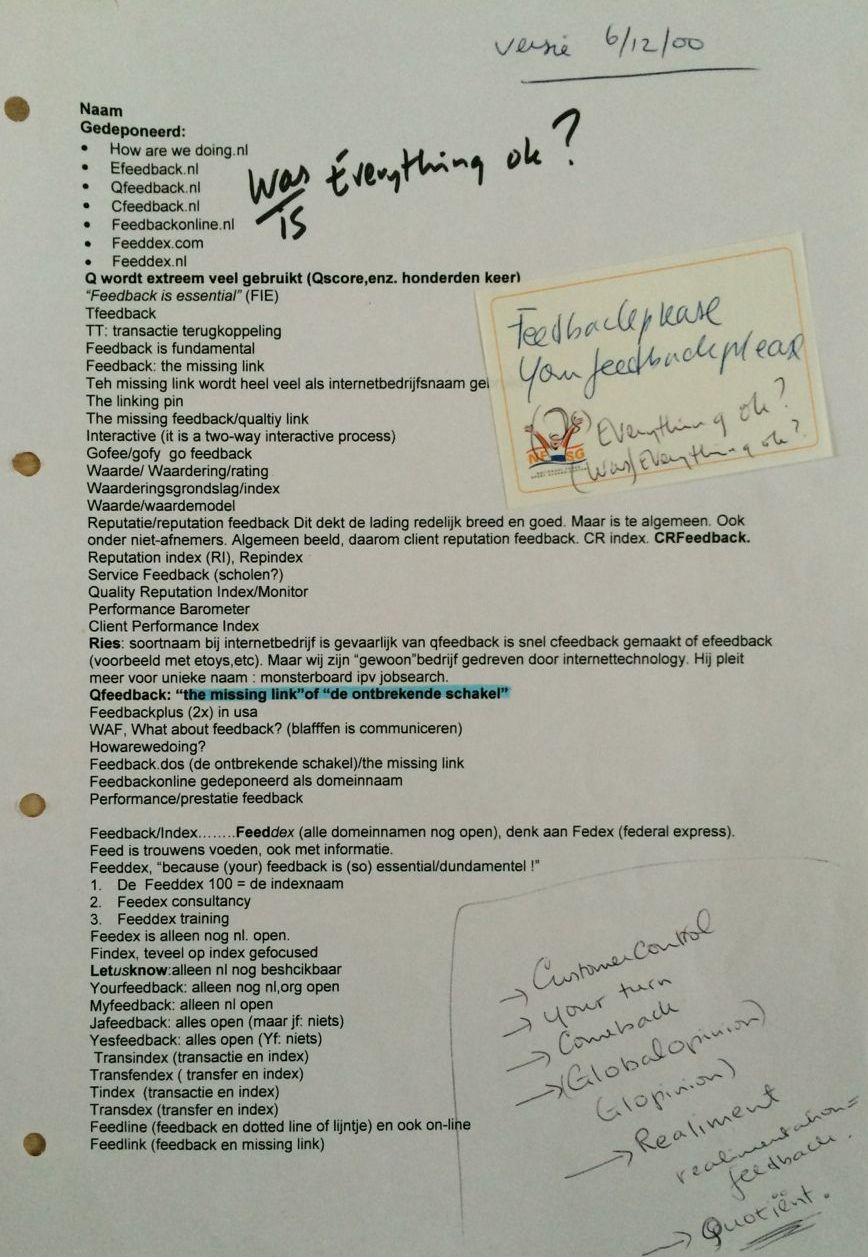 versie 6/12/00
Naam
Gedeponeerd:
• How are we doing.nl
• Efeedback.nl
• Qfeedback.nl
• Cfeedback.nl
• Feedbackonline.nl
• Feeddex.com
• Feeddex.nl
Was Everything ok?
IS
Q wordt extreem veel gebruikt (Qscore,enz. honderden keer)
“Feedback is essential” (FIE)
Tfeedback
TT: transactie terugkoppeling
Feedback is fundamental
Feedback: the missing link
Teh missing link wordt heel veel als internetbedrijfsnaam
The linking pin
The missing feedback/qualtiy link
Interactive (it is a two-way interactive process)
Gofee/gofy go feedback
Waarde/ Waardering/rating
Waarderingsgrondslag/index
Waarde/waardemodel
Feedbackplease
Your feedback please
Everything ok?
(Was) Everything ok?
Reputatie/reputation feedback Dit dekt de lading redelijk breed en goed. Maar is te algemeen. Ook
onder niet-afnemers. Algemeen beeld, daarom client reputation feedback. CR index. CRFeedback.
Reputation index (RI), Repindex
Service Feedback (scholen?)
Quality Reputation Index/Monitor
Performance Barometer
Client Performance Index
Ries: soortnaam bij internetbedrijf is gevaarlijk van qfeedback is snel cfeedback gemaakt of efeedback
(voorbeeld met etoys,etc). Maar wij zijn “gewoon”bedrijf gedreven door internettechnology. Hij pleit
meer voor unieke naam : monsterboard ipv jobsearch.
Qfeedback: “the missing link”of “de ontbrekende schakel”
Feedbackplus (2x) in usa
WAF, What about feedback? (blafffen is communiceren)
Howarewedoing?
Feedback.dos (de ontbrekende schakel)/the missing link
Feedbackonline gedeponeerd als domeinnaam
Performance/prestatie feedback
Feedback/Index……..Feeddex (alle domeinnamen nog open), denk aan Fedex (federal express).
Feed is trouwens voeden, ook met informatie.
Feeddex, “because (your) feedback is (so) essential/dundamentel !”
1. De Feeddex 100 = de indexnaam
2. Feedex consultancy
3. Feeddex training
Feedex is alleen nog nl. open.
Findex, teveel op index gefocused
Letusknow:alleen nl nog beshcikbaar
Yourfeedback: alleen nog nl,org open
Myfeedback: alleen nl open
Jafeedback: alles open (maar jf: niets)
Yesfeedback: alles open (Yf: niets)
Transindex (transactie en index)
Transfendex ( transfer en index)
Tindex (transactie en index)
Transdex (transfer en index)
Feedline (feedback en dotted line of lijntje) en ook on-line
Feedlink (feedback en missing link)
→ CustomerControl
→ your turn
→ Comeback
→ (Globalopinion)
(Glopinion)
→ Realiment
realimentation=
feedback.
→ Quotiënt.